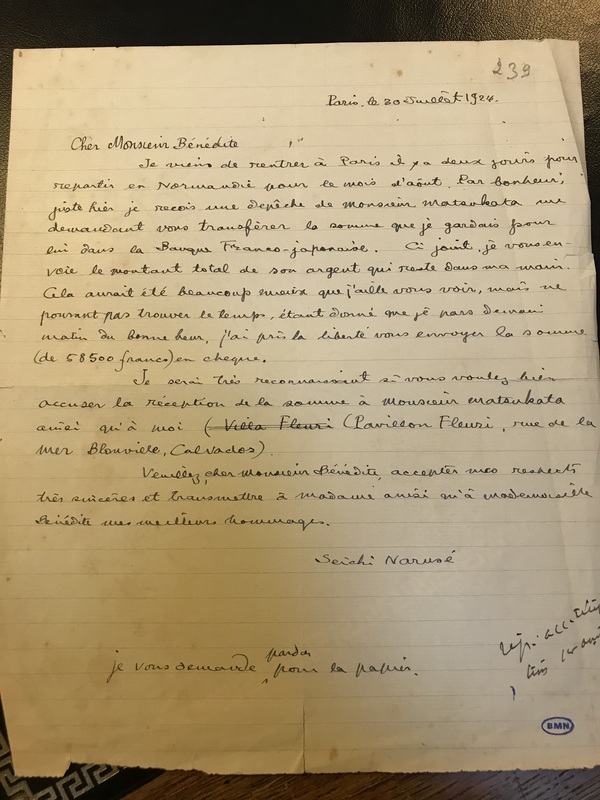 239
Paris, le 30 Juillet 1924.
Cher Monsieur Bénédite
Je viens de rentrer à Paris il y a deux jours pour
repartir en Normandie pour le mois d'août. Par bonheur,
juste hier je reçois une depêche de monsieur Matsukata me
demandant vous transférer la somme que je gardais pour
lui dans la Banque Franco-japonaise. Ci joint, je vous en-
voie le montant total de son argent qui reste dans ma main.
Cela aurait été beaucoup mieux que j'aille vous voir, mais ne
pouvant pas trouver le temps, étant donné que je pars demain
matin du bonne heur, j'ai pris la liberté vous envoyer la somme
(de 58500 francs) en cheque.
Je serai très reconnaissant si vous voulez bien
accuser la réception de la somme à Monsieur Matsukata
ainsi qu'à moi (Villa Fleuri (Pavillon Fleuri, rue de la
mer Blonville, Calvados).
Veuillez, cher Monsieur Bénédite, accepter mes respects
très sincères et transmettre à madame ainsi qu'à mademoiselle
Bénédite mes meilleurs hommages.
Seichi Narusé
je vous demande pardon pour la papier.
rép:
BMN